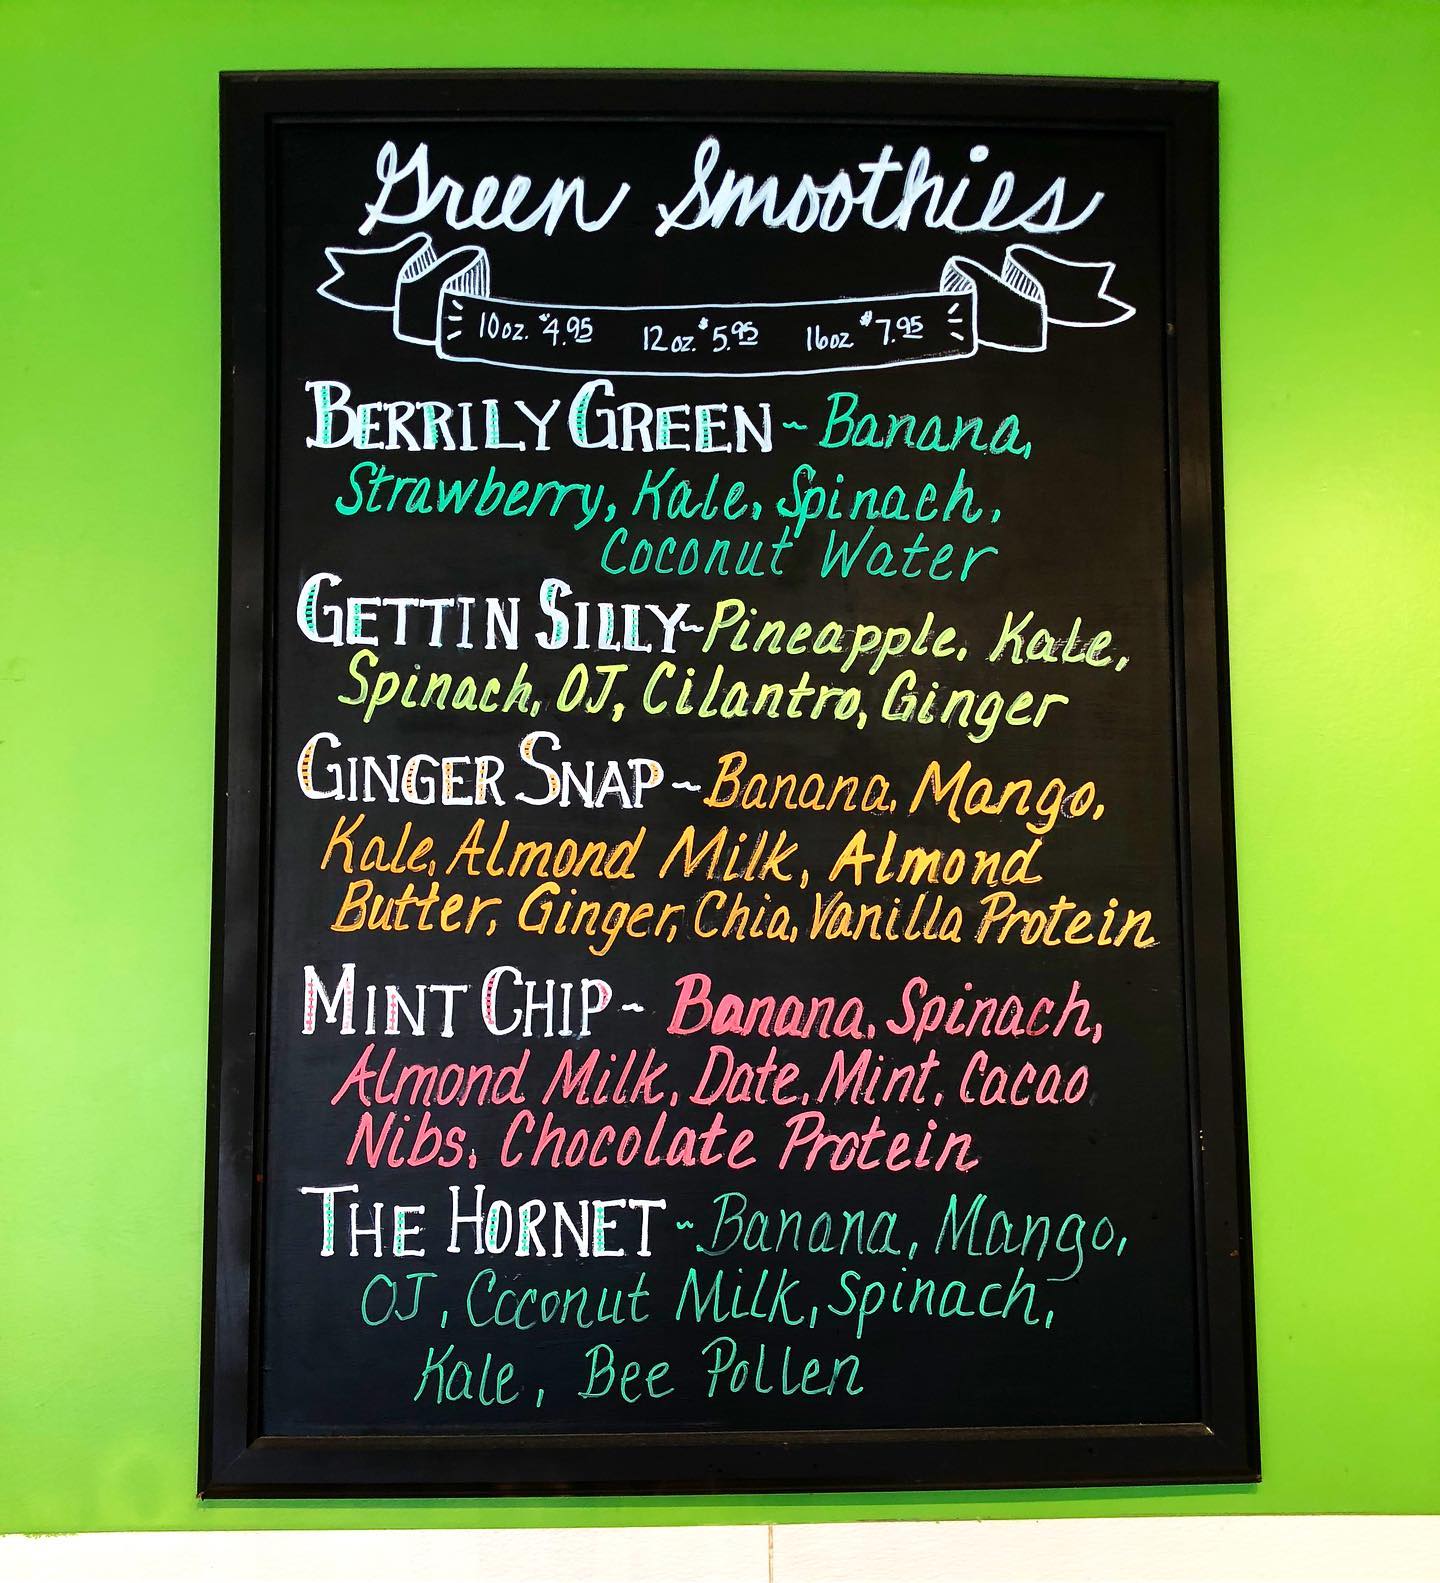 Green Smoothies
10oz. $4.95 12oz. $5.95 16oz $7.95
BERRILY GREEN ~ Banana,
Strawberry, Kale, Spinach,
Coconut Water
GETTIN SILLY ~ Pineapple, Kale,
Spinach, OJ, Cilantro, Ginger
GINGER SNAP ~ Banana, Mango,
Kale, Almond Milk, Almond
Butter, Ginger, Chia, Vanilla Protein
MINT CHIP ~ Banana, Spinach,
Almond Milk, Date, Mint, Cacao
Nibs, Chocolate Protein
THE HORNET ~ Banana, Mango,
OJ, Coconut Milk, Spinach,
Kale, Bee Pollen